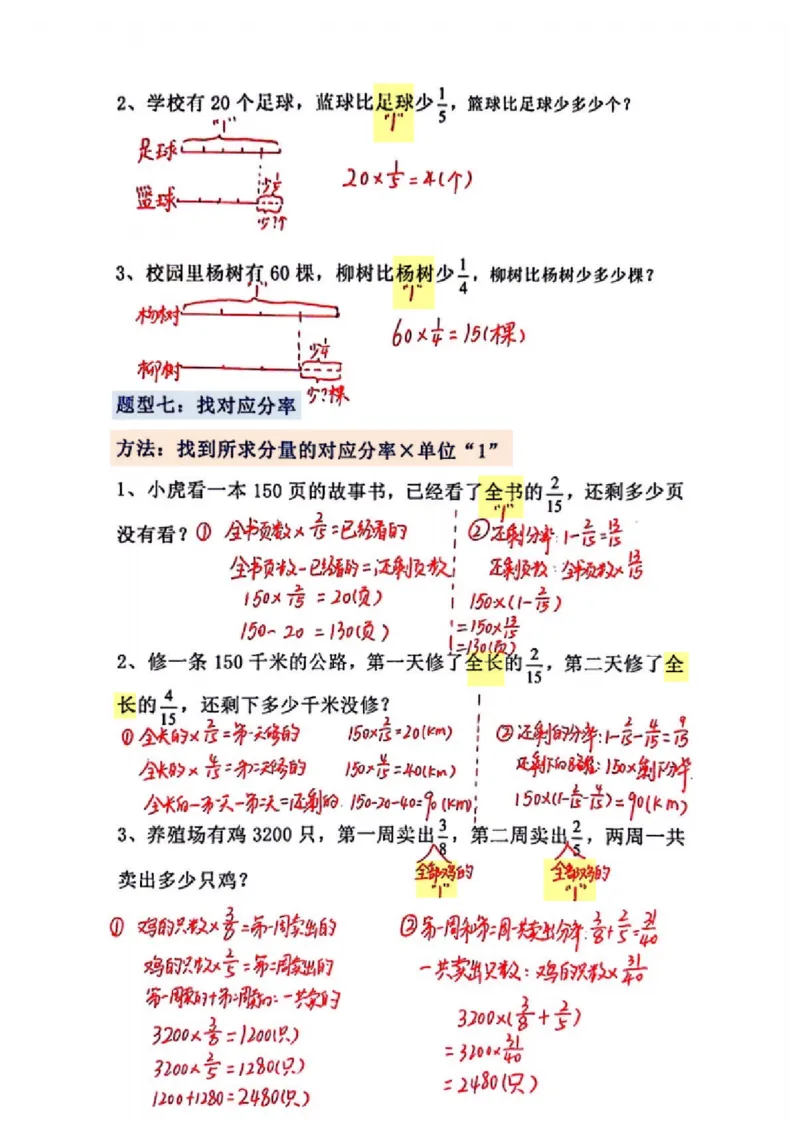 2、学校有 20 个足球，蓝球比足球少1/5，篮球比足球少多少个？
“1” “1”
足球
20×1/5=4(个)
少1/5
篮球
少?个
3、校园里杨树有 60 棵，柳树比杨树少1/4，柳树比杨树少多少棵？
“1” “1”
杨树
60×1/4=15(棵)
少1/4
柳树
少?棵
题型七：找对应分率
方法：找到所求分量的对应分率×单位“1”
1、小虎看一本 150 页的故事书，已经看了全书的2/15，还剩多少页
“1”
没有看？①全书页数×2/15=已经看的 ②还剩分率:1-2/15=13/15
全书页数-已经看的=还剩页数 还剩页数:全书页数×13/15
150×2/15=20(页) 150×(1-2/15)
150-20=130(页) =150×13/15
=130(页)
2、修一条 150 千米的公路，第一天修了全长的2/15，第二天修了全
长的4/15，还剩下多少千米没修？
①全长的×2/15=第一天修的 150×2/15=20(km) ②还剩的分率:1-2/15-4/15=9/15
全长的×4/15=第二天修的 150×4/15=40(km) 还剩下的:150×剩下分率
全长的-第一天-第二天=还剩的 150-20-40=90(km) 150×(1-2/15-4/15)=90(km)
3、养殖场有鸡 3200 只，第一周卖出3/8，第二周卖出2/5，两周一共
全部鸡的 全部鸡的
“1” “1”
卖出多少只鸡？
①鸡的只数×3/8=第一周卖出的 ②第一周和第二周一共卖出分率:3/8+2/5=31/40
鸡的只数×2/5=第二周卖出的 一共卖出只数:鸡的只数×31/40
第一周卖的+第二周卖的:一共卖的
3200×3/8=1200(只) 3200×(3/8+2/5)
3200×2/5=1280(只) =3200×31/40
1200+1280=2480(只) =2480(只)